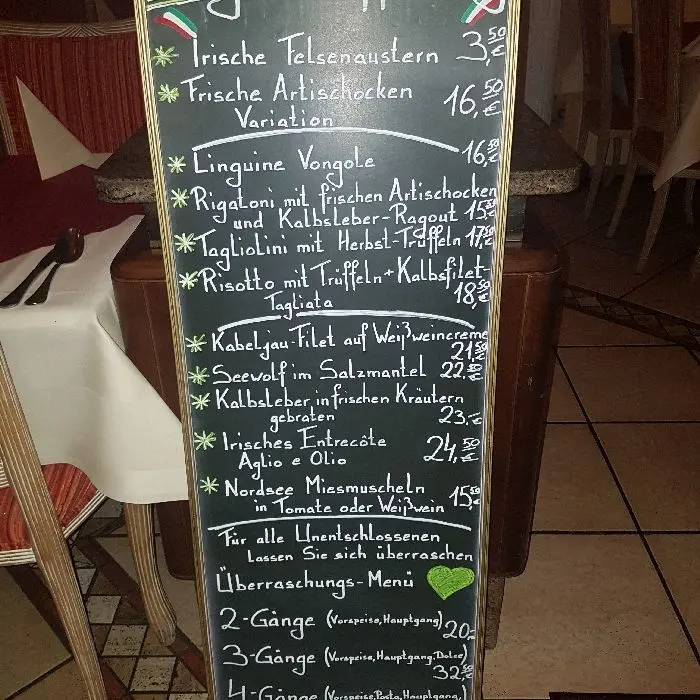 Irische Felsenaustern 3,50 €
Frische Artischocken 16,50 €
Variation
Linguine Vongole 16,50 €
Rigatoni mit frischen Artischocken
und Kalbsleber-Ragout 15,50 €
Tagliolini mit Herbst-Trüffeln 17,50 €
Risotto mit Trüffeln + Kalbsfilet-
Tagliata 18,50 €
Kabeljau-Filet auf Weißweincreme
21,50 €
Seewolf im Salzmantel 22,50 €
Kalbsleber in frischen Kräutern
gebraten 23,-€
Irisches Entrecôte 24,50 €
Aglio e Olio
Nordsee Miesmuscheln 15,50 €
in Tomate oder Weißwein
Für alle Unentschlossenen
Lassen Sie sich überraschen
Überraschungs-Menü
2-Gänge (Vorspeise, Hauptgang) 20,-
3-Gänge (Vorspeise, Hauptgang, Dolce)
32,50
4-Gänge (Vorspeise, Pasta, Hauptgang,